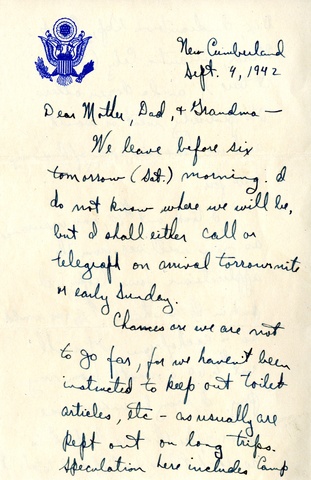 New Cumberland
Sept. 4, 1942
Dear Mother, Dad, & Grandma —
We leave before six
tomorrow (Sat.) morning. I
do not know where we will be,
but I shall either call or
telegraph on arrival torrownite
or early Sunday.
Chances are we are not
to go far, for we haven't been
instructed to keep out toilet
articles, etc - as usually are
kept out on long trips.
Speculation here includes Camp